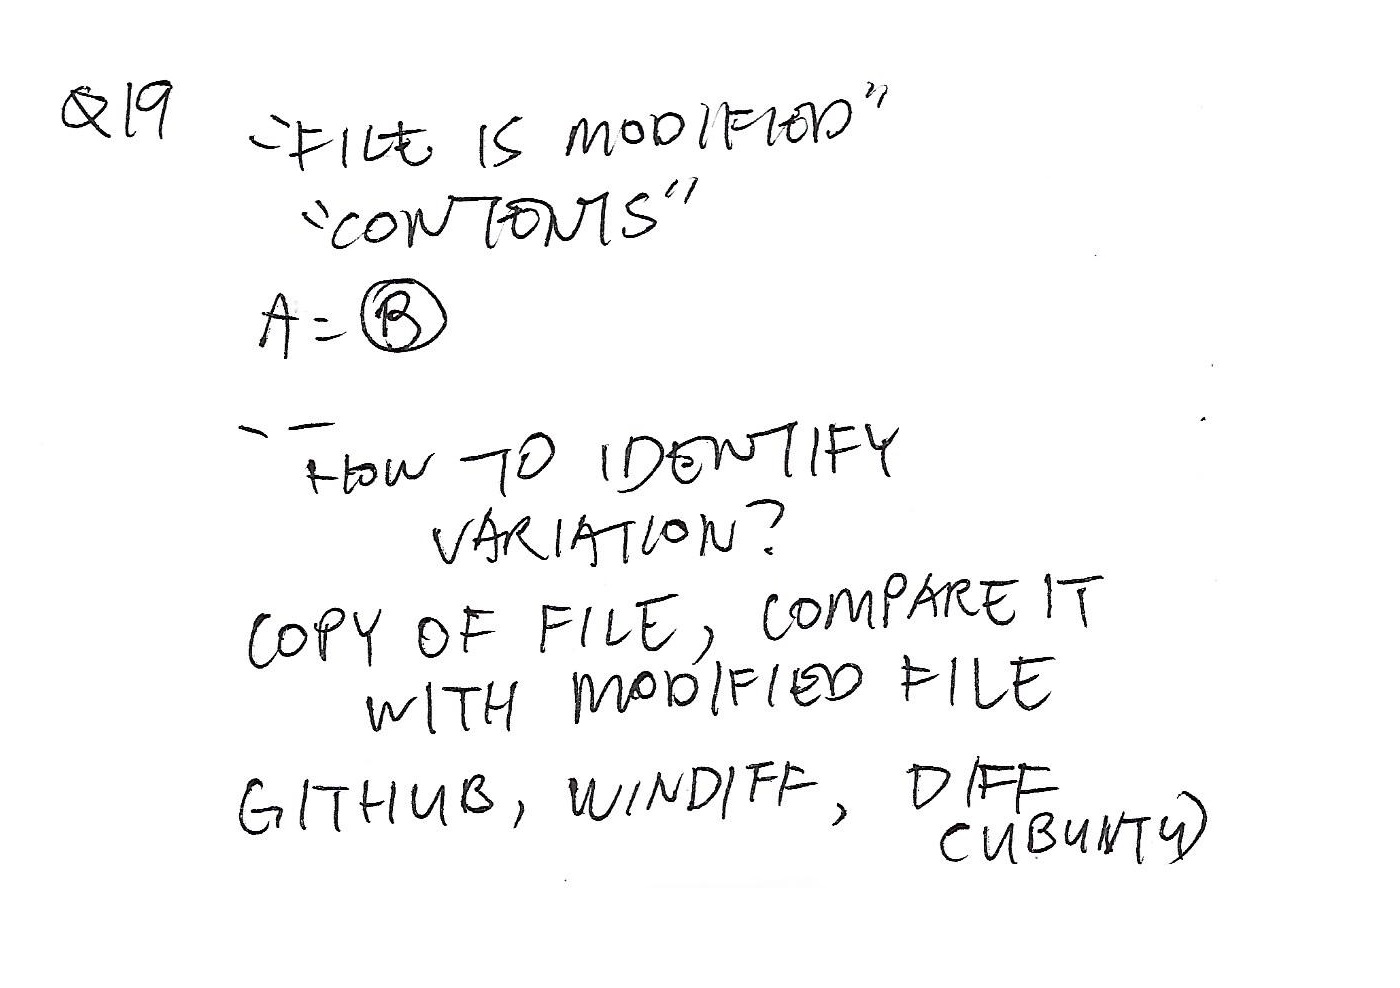 Q19
"FILE IS MODIFIED"
"CONTENTS"
A = B
HOW TO IDENTIFY
VARIATION?
COPY OF FILE, COMPARE IT
WITH MODIFIED FILE
GITHUB, WINDIFF, DIFF
(UBUNTU)